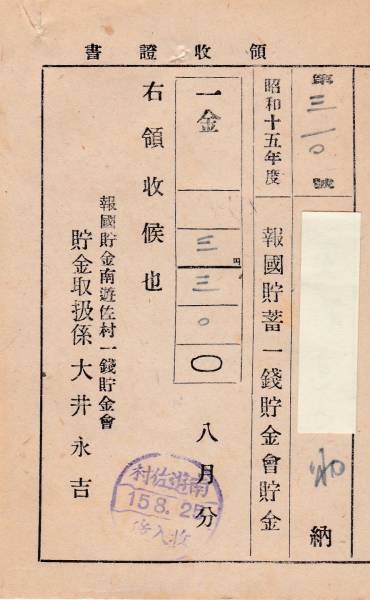 領收證書
第三一〇號
納
昭和十五年度
報國貯蓄一錢貯金會貯金
一金
円
三三〇〇
八月分
右領收候也
報國貯金南遊佐村一錢貯金會
貯金取扱係大井永吉
南遊佐村
15 8. 25
收入係